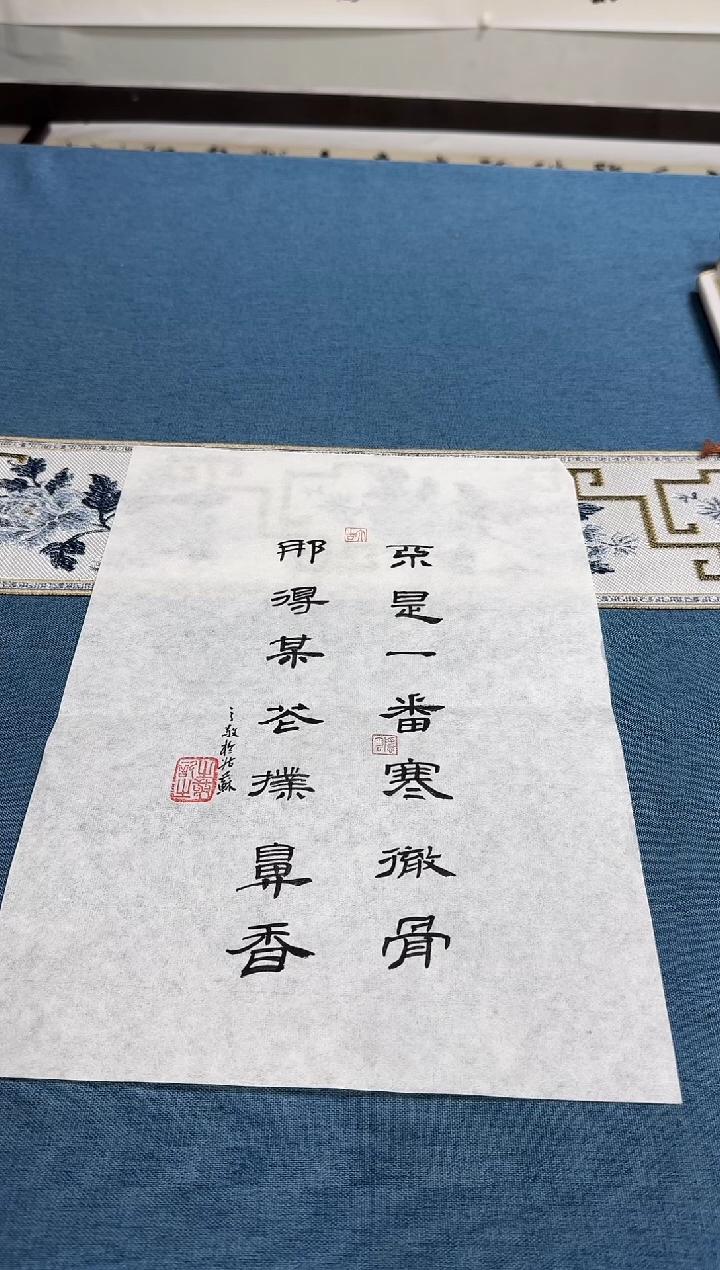 不是一番寒徹骨
那得某花撲鼻香
之敬於姑蘇